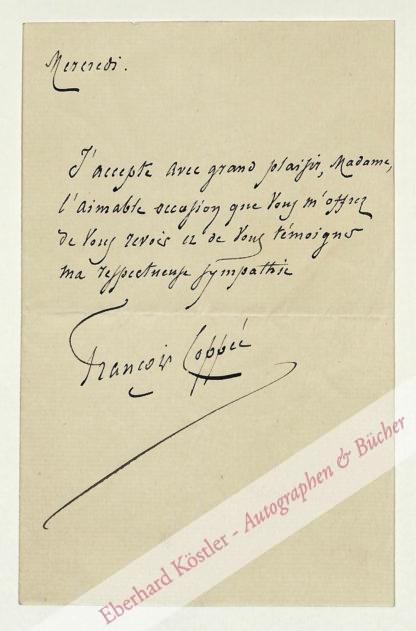 Mercredi.
J'accepte avec grand plaisir, Madame,
l'aimable occasion que Vous m'offrez
de Vous revoir et de Vous témoigner
ma respectueuse sympathie
François Coppée
Eberhard Köstler - Autographen & Bücher